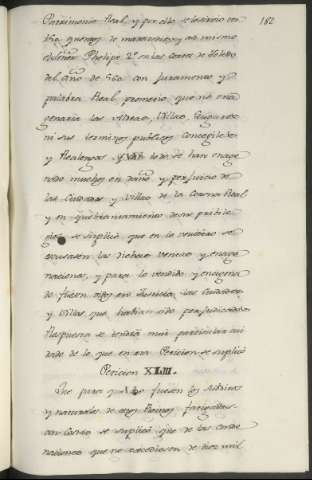 Patrimonio Real, y por ello se sirvio con
182
ciertos quentos de maravedises, y asi mismo
el Señor Phelipe 2.º en las Cortes de Toledo
del año de 560 con juramento y
palabra Real prometio que no ena-
genaria las Aldeas, Villas, Lugares
ni sus terminos publicos Concegiles
y Realengos, y todo se han enage-
nado muchos en daño y perjuicio de
las Ciudades y Villas de la Corona Real
y en quebrantamiento de sus privile-
gios se suplicó que en lo venidero se
escusasen las dichas ventas y enage-
naciones, y para lo vendido y enagena-
do fuesen oidos en Justicia las Ciudades
y Villas, que habian sido perjudicadas
Respuesta se tendrá mui particular cui-
dado de lo que en esta Peticion se suplicó
Peticion XLIII.
Que para que no fuesen los subditos
y naturales de estos Reinos fatigados
con Costas se suplicó que de las conde-
naciones que no excediesen de diez mil